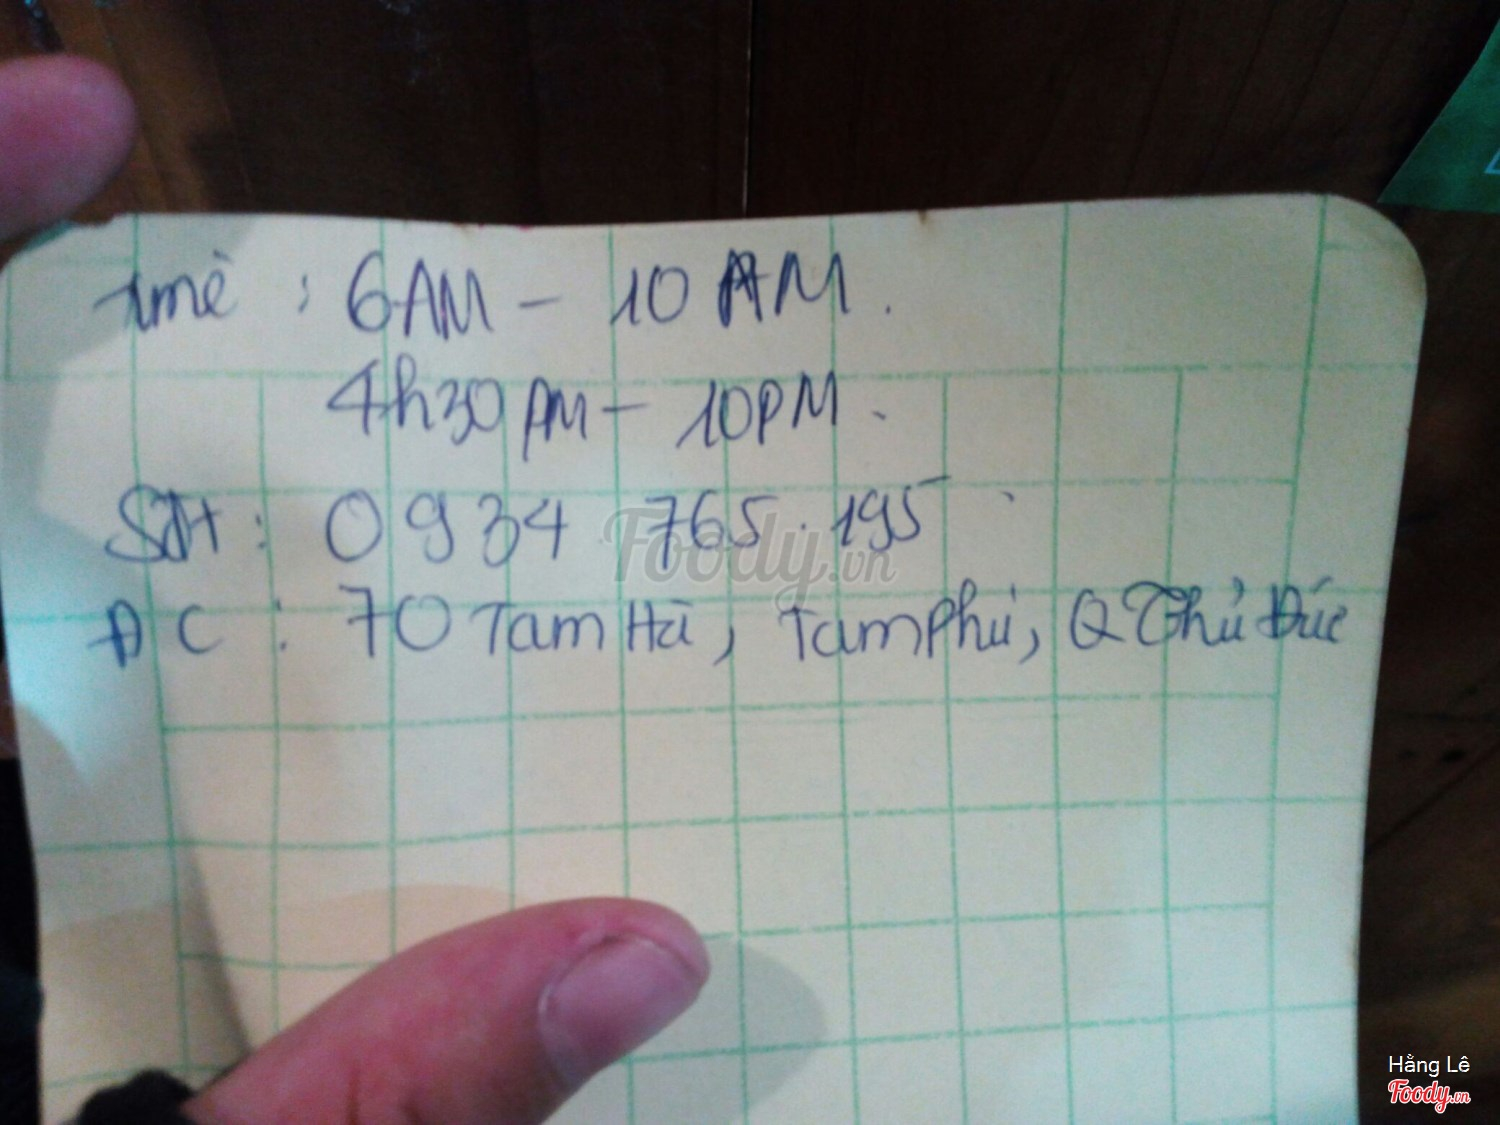 time : 6AM - 10 AM.
4h30 PM - 10PM.
SĐT: 0934 765.195
ĐC : 70 Tam Hà, Tam Phú, Q Thủ Đức
Foody.vn
Hằng Lê
Foody.vn